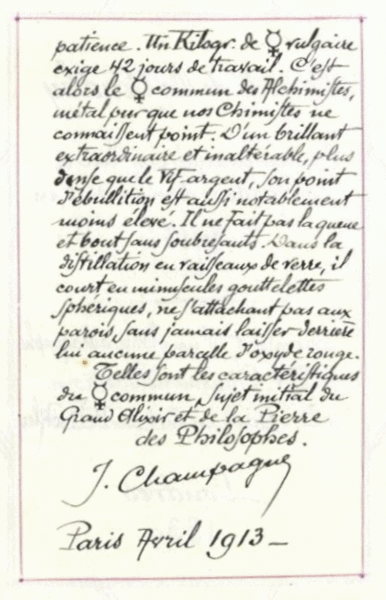 patience. Un Kilogr. de ☿ vulgaire
exige 42 jours de travail. C'est
alors le ☿ commun des Alchimistes,
métal pur que nos Chimistes ne
connaissent point. D'un brillant
extraordinaire et inaltérable, plus
dense que le Vif argent, son point
d'ébullition est aussi notablement
moins élevé. Il ne fait pas la queue
et bout sans soubresauts. Dans la
distillation en vaisseaux de verre, il
court en minuscules gouttelettes
sphériques, ne s'attachant pas aux
parois, sans jamais laisser derrière
lui aucune parcelle d'oxyde rouge.
Telles sont les caractéristiques
du ☿ commun sujet initial du
Grand Elixir et de la Pierre
des Philosophes.
J. Champagne
Paris Avril 1913 —